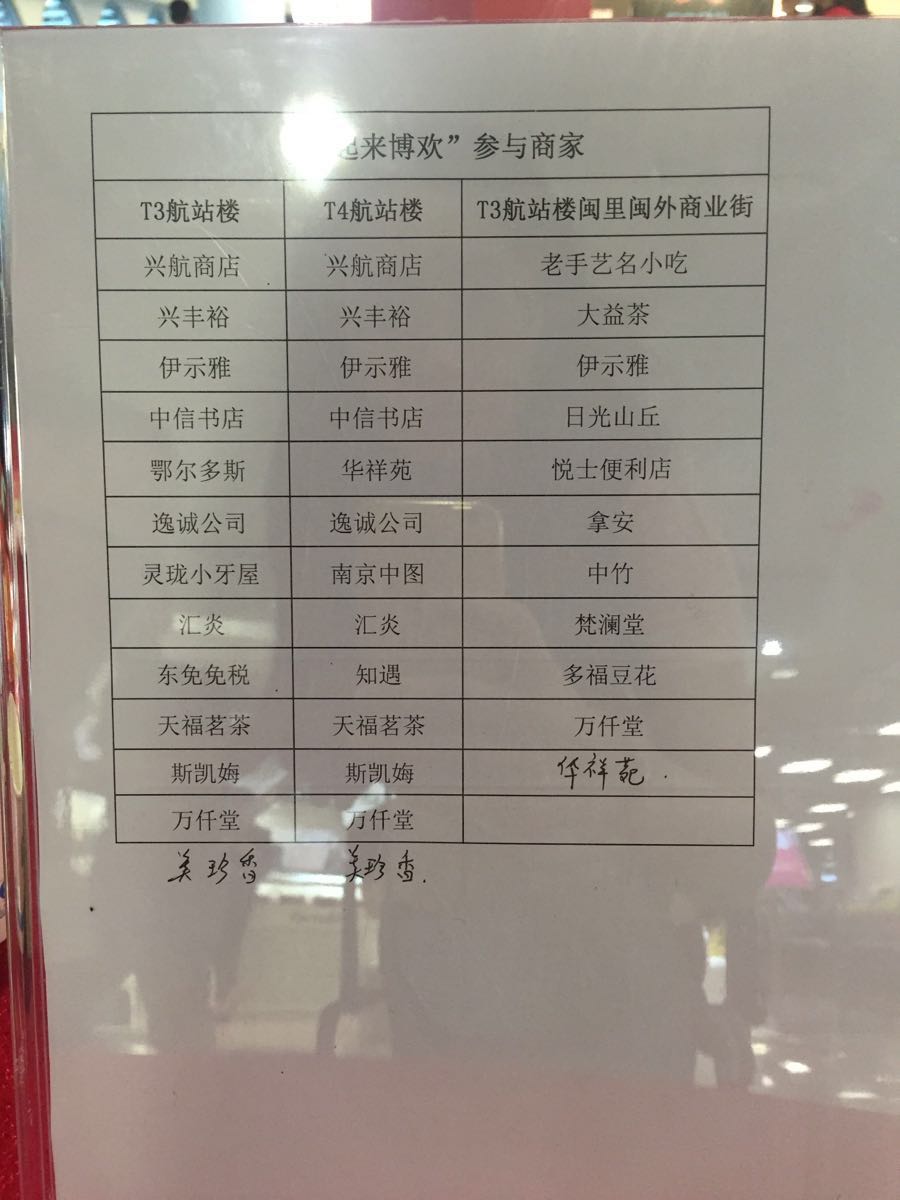 起来博欢”参与商家
T3航站楼 T4航站楼 T3航站楼闽里闽外商业街
兴航商店 兴航商店 老手艺名小吃
兴丰裕 兴丰裕 大益茶
伊示雅 伊示雅 伊示雅
中信书店 中信书店 日光山丘
鄂尔多斯 华祥苑 悦士便利店
逸诚公司 逸诚公司 拿安
灵珑小牙屋 南京中图 中竹
汇炎 汇炎 梵澜堂
东免免税 知遇 多福豆花
天福茗茶 天福茗茶 万仟堂
斯凯娒 斯凯娒 华祥苑.
万仟堂 万仟堂
美珍香 美珍香.